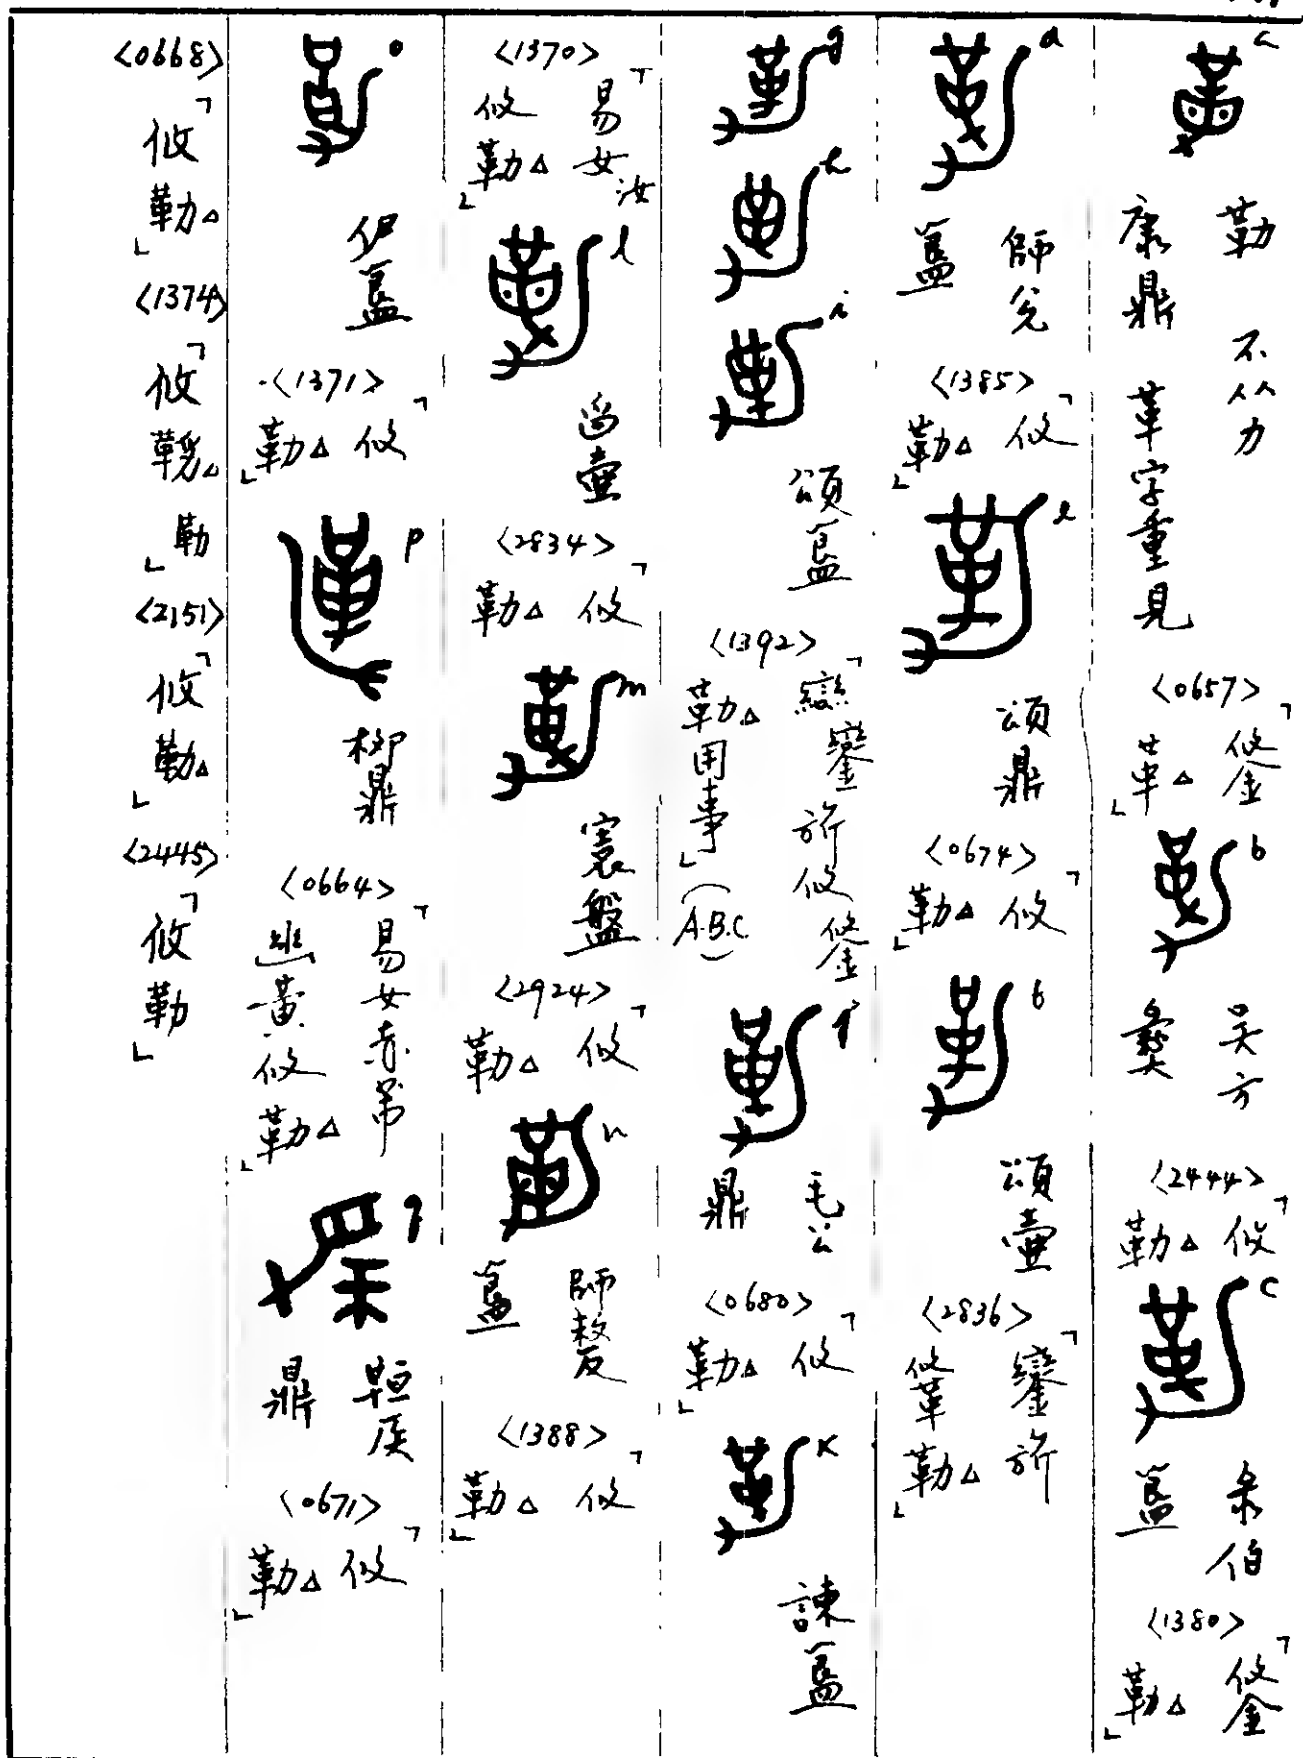 a
勒 不从力
康鼎 革字重見
<0657>
「鋚
革△」
b
吴方
彝
<2444>
「攸
勒△」
c
彔伯
簋
<1380>
「鋚
勒△」
d
師兌
簋
<1385>
「攸
勒△」
e
頌鼎
<0674>
「攸
勒△」
f
頌壷
<2836>
「鑾旂
攸革勒△」
g
h
i
頌簋
<1392>
「䜌鑾旂攸鋚
勒△用事」(A.B.C)
j
毛公
鼎
<0680>
「攸
勒△」
k
諫簋
<1370>
「易女汝
攸勒△」
l
壷
<2834>
「攸
勒△」
m
寰盤
<2924>
「攸
勒△」
n
師嫠
簋
<1388>
「攸
勒△」
o
伊簋
<1371>
「攸
勒△」
p
柳鼎
<0664>
「易女赤巿
幽黃攸勒△」
q
鼎
<0671>
「攸
勒△」
<0668>
「攸勒△」
<1374>
「攸△勒」
<2151>
「攸勒△」
<2445>
「攸勒」